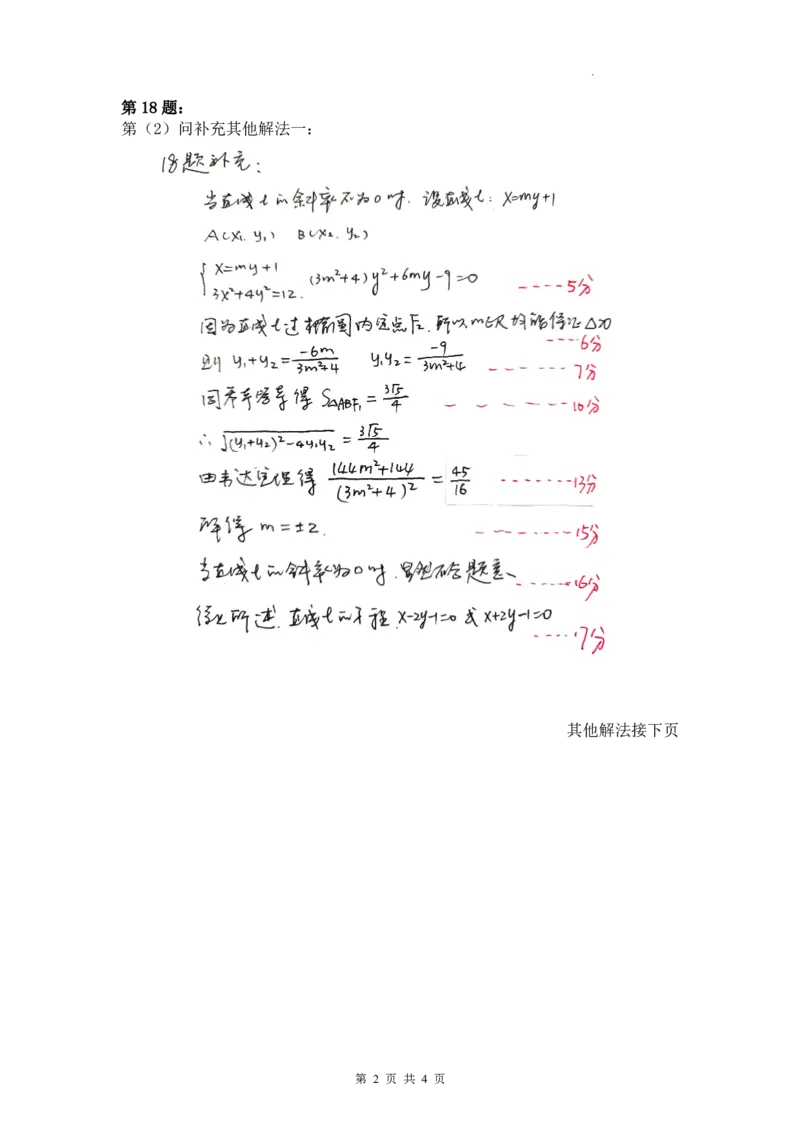 第 18 题：
第（2）问补充其他解法一：
18题补充：
当直线l的斜率不为0时，设直线l：x=my+1
A(x₁, y₁)  B(x₂, y₂)
{ x=my+1  3x²+4y²=12.  (3m²+4)y²+6my-9=0  ----5分
因为直线l过椭圆内定点F₂，所以m∈R均能保证△>0
---6分
则 y₁+y₂ = -6m/(3m²+4)  y₁y₂ = -9/(3m²+4)  ------7分
同参考答案得 S△ABF₁ = 3√5/4  -------10分
∴ √((y₁+y₂)²-4y₁y₂) = 3√5/4
由韦达定理得 (144m²+144)/(3m²+4)² = 45/16  -------13分
解得 m=±2.  -------15分
当直线l的斜率为0时，显然不合题意、------16分
综上所述，直线l的方程 x-2y-1=0 或 x+2y-1=0
----17分
其他解法接下页
第 2 页 共 4 页